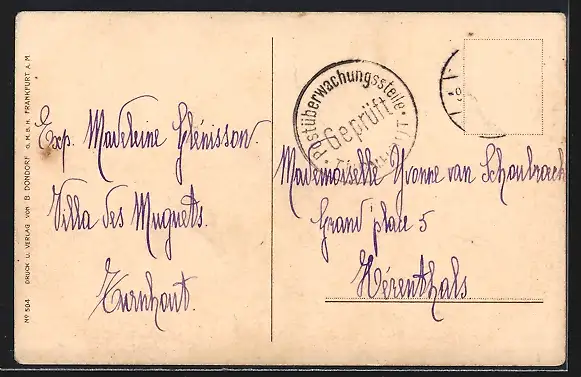 Exp. Madeleine Glénisson.
Villa des Muguets.
Turnhout.
Postüberwachungsstelle
Geprüft
Mademoiselle Yvonne van Schoubroeck
Grand place 5
Hérenthals.
No 504 DRUCK U. VERLAG VON B. DONDORF G.M.B.H. FRANKFURT A.M.